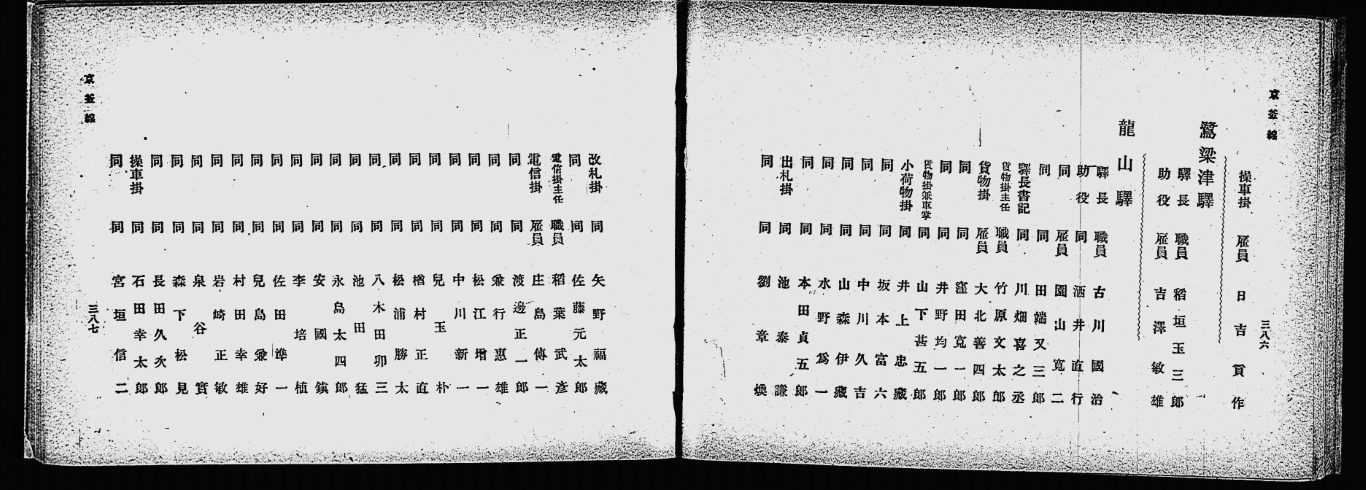 京釜線
三八六
操車掛 雇員 日吉貫作
鷺梁津驛
驛長 職員 稻垣玉三郎
助役 雇員 吉澤敏雄
龍山驛
驛長 職員 古川國治
助役 同 酒井直行
同 雇員 園山寬二
同 同 田端又三郎
驛長書記 同 川畑喜之丞
貨物掛主任 職員 竹原文太郎
貨物掛 雇員 大北善四郎
同 同 窪田寬一郎
同 同 井野均一郎
貨物掛 同 山下甚五郎
小荷物掛 同 井上忠藏
同 同 坂本富六
同 同 中川久吉
同 同 山森伊藏
同 同 水野爲一
同 同 本田貞五郎
出札掛 同 池泰謙
同 同 劉章煥
京釜線
三八七
改札掛 同 矢野福藏
同 同 佐藤元太郎
電信掛主任 職員 稻葉武彥
電信掛 雇員 庄島傳一
同 同 渡邊正一郎
同 同 兼行惠雄
同 同 松江增一
同 同 中川新一
同 同 兒玉朴
同 同 楢村正直
同 同 松浦勝太
同 同 八木田卯三
同 同 池田猛
同 同 永島太四郎
同 同 安國鎭
同 同 李培植
同 同 佐田準一
同 同 兒島愛好
同 同 村田幸雄
同 同 岩崎正敏
同 同 泉谷實
同 同 森下松見
同 同 長田久次郎
操車掛 同 石田幸太郎
同 同 宮垣信二